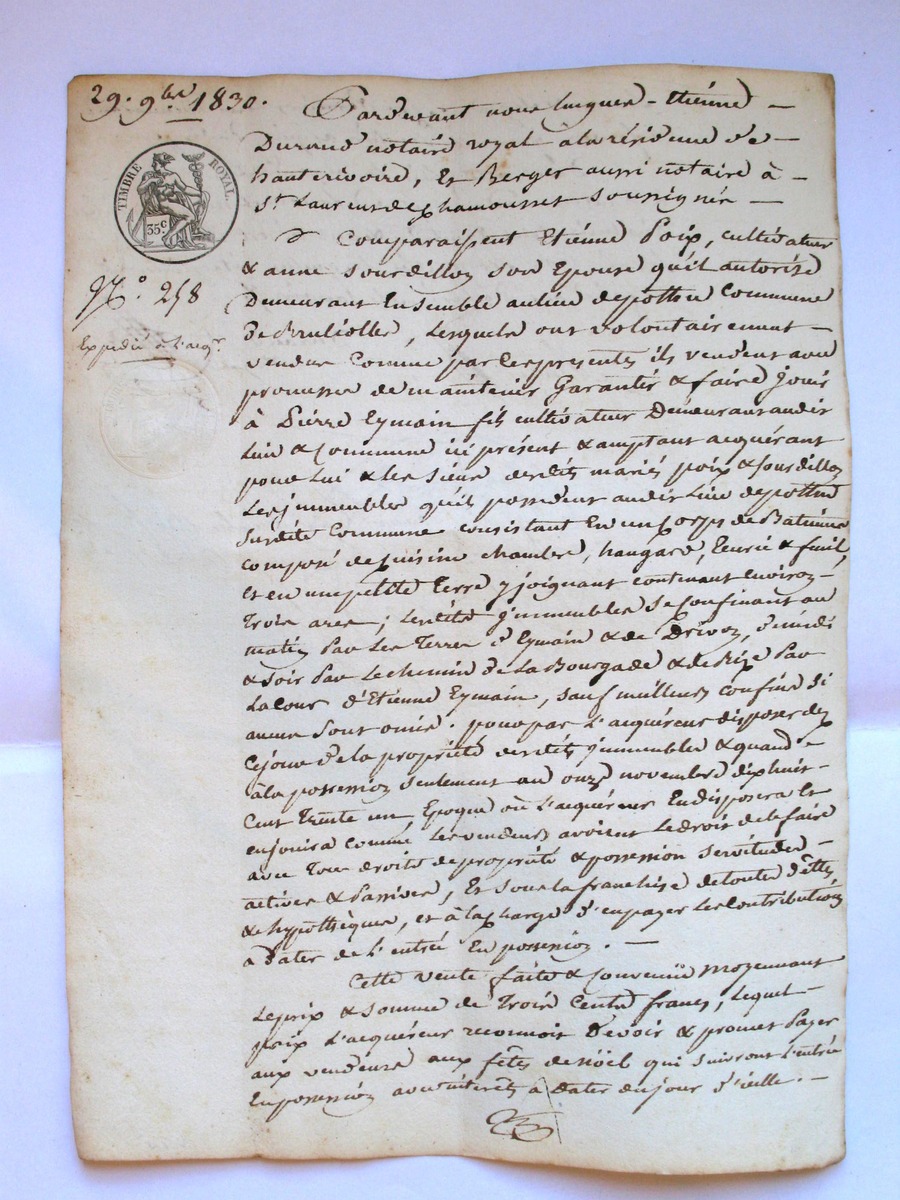 29. 9bre 1830.
Pardevant nous hugues-Etienne
Durand notaire royal à la résidence de
hauterivoire, Et Berger aussi notaire à
St Laurent de chamousset soussignés
TIMBRE ROYAL
35c
No. 258
Expédié à l'acqr.
Comparaissent Etienne Poix, cultivateur
& anne sourdillon son Epouse qu'il autorise
Demeurant Ensemble au lieu de pottou Commune
de Brullolles, Lesquels ont volontairement
vendu Comme par les présentes ils vendent avec
promesse de maintenir Garantir & faire jouir
à Pierre Eymain fils cultivateur Demeurant audit
Lieu & Commune ici présent & acceptant acquérant
pour Lui & les siens desdits mariés poix & sourdillon
Les jmmeubles qu'ils possèdent audit Lieu de pottou
susdite Commune consistant En un Corps de Batiment
composé de Cuisine chambre, hangard, Ecurie & fenil,
et en une petite Terre y joignant contenant environ
Trois ares; Lesdits jmmeubles se Confinant au
matin Par Les Terres d'Eymain & de Drivon, de midi
& soir Par Le chemin de La Bourgade & de Bize Par
La Cour d'Etienne Eymain, sauf meilleurs confins si
aucuns sont omis. pour par L'acquéreur disposer dez
Cejour de la propriété desdits jmmeubles & quand
à la possession seulement au onze novembre dix huit
Cent Trente un, Epoque où L'acquéreur En disposera Et
en jouira comme Les vendeurs avoient Le droit de le faire
avec Tous droits de propriété & possession servitudes
actives & Passives, Et sous la franchise de toutes dettes
& hypothèques, et à la charge d'en payer Les Contributions
à Dater de l'entrée En possession.
Cette vente faite & Convenüe moyennant
Le prix & somme de Trois Cents francs, Lequel
prix L'acquéreur reconnoit Devoir & promet Payer
aux vendeurs aux fêtes de noël qui suivront L'entrée
En possession avec intérêts à Dater du jour d'icelle.